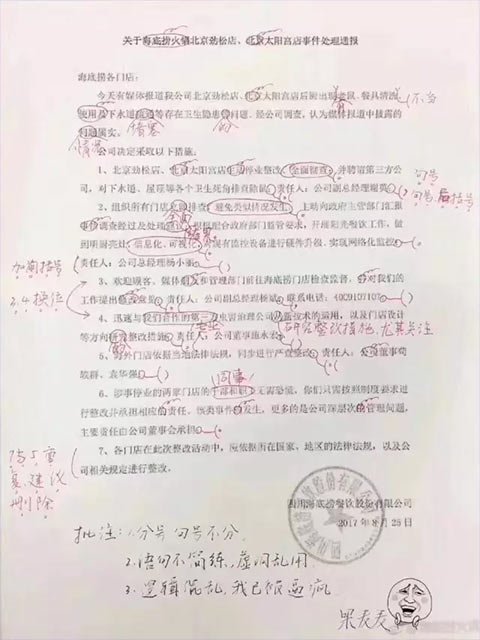 关于海底捞火锅北京劲松店、北京太阳宫店事件处理通报
海底捞各门店:
今天有媒体报道我公司北京劲松店、北京太阳宫店后厨出现老鼠、餐具清洗
使用及下水道疏通等存在卫生隐患等问题。经公司调查,认为媒体报道中披露的
问题属实。
公司决定采取以下措施:
1、北京劲松店、北京太阳宫店主动停业整改、全面彻查;并聘请第三方公
司,对下水道、屋顶等各个卫生死角排查除鼠。责任人:公司副总经理谢英。
2、组织所有门店立即排查,避免类似情况发生;主动向政府主管部门汇报
事情调查经过及处理建议;积极配合政府部门监管要求,开展阳光餐饮工作,做
到明厨亮灶,信息化、可视化,对现有监控设备进行硬件升级,实现网络化监控。
责任人:公司总经理杨小丽。
3、欢迎顾客、媒体朋友和管理部门前往海底捞门店检查监督,并对我们的
工作提出
责任人:公司副总经理杨斌。联系电话:4009107107
4、迅速与我们合作的第三方虫害治理公司从新技术的运用,以及门店设计
等方向研究整改措施。责任人:公司董事施永宏。
5、海外门店依据当地法律法规,同步进行严查整改。责任人:公司董事苟
轶群、袁华强。
6、涉事停业的两家门店的干部和职工无需恐慌,你们只需按照制度要求进
行整改并承担相应的责任。该类事件的发生,更多的是公司深层次的管理问题,
主要责任由公司董事会承担。
7、各门店在此次整改活动中,应依据所在国家、地区的法律法规,以及公
司相关规定进行整改。
四川海底捞餐饮股份有限公司
2017年8月25日
不当
情况
的
句号
句号后括号
加前括号
3.4换位
全面
专业
研究整改措施,尤其关注
同事
7与5重
复,建议
删除
批注:1.分号句号不分
2.语句不简练,虚词乱用
3.逻辑混乱,我已被逼疯